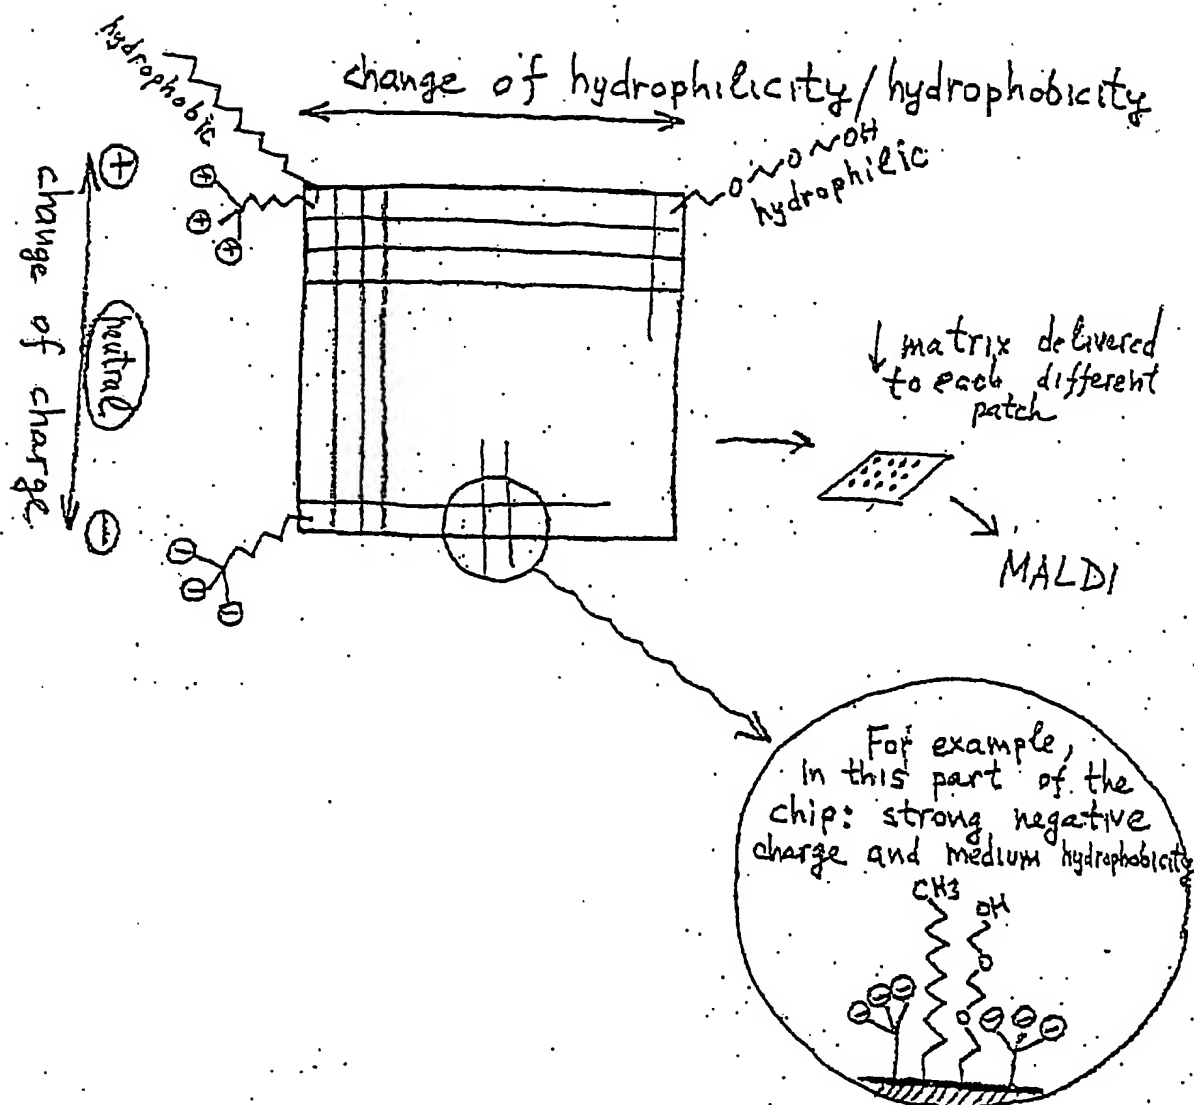 hydrophobic
change of hydrophilicity/hydrophobicity
O O OH
hydrophilic
+
change of charge
neutral
−
+
+
+
−
−
−
↓ matrix delivered
to each different
patch
MALDI
For example,
in this part of the
chip: strong negative
charge and medium hydrophobicity
CH3
OH
O
O
− − −
− − −